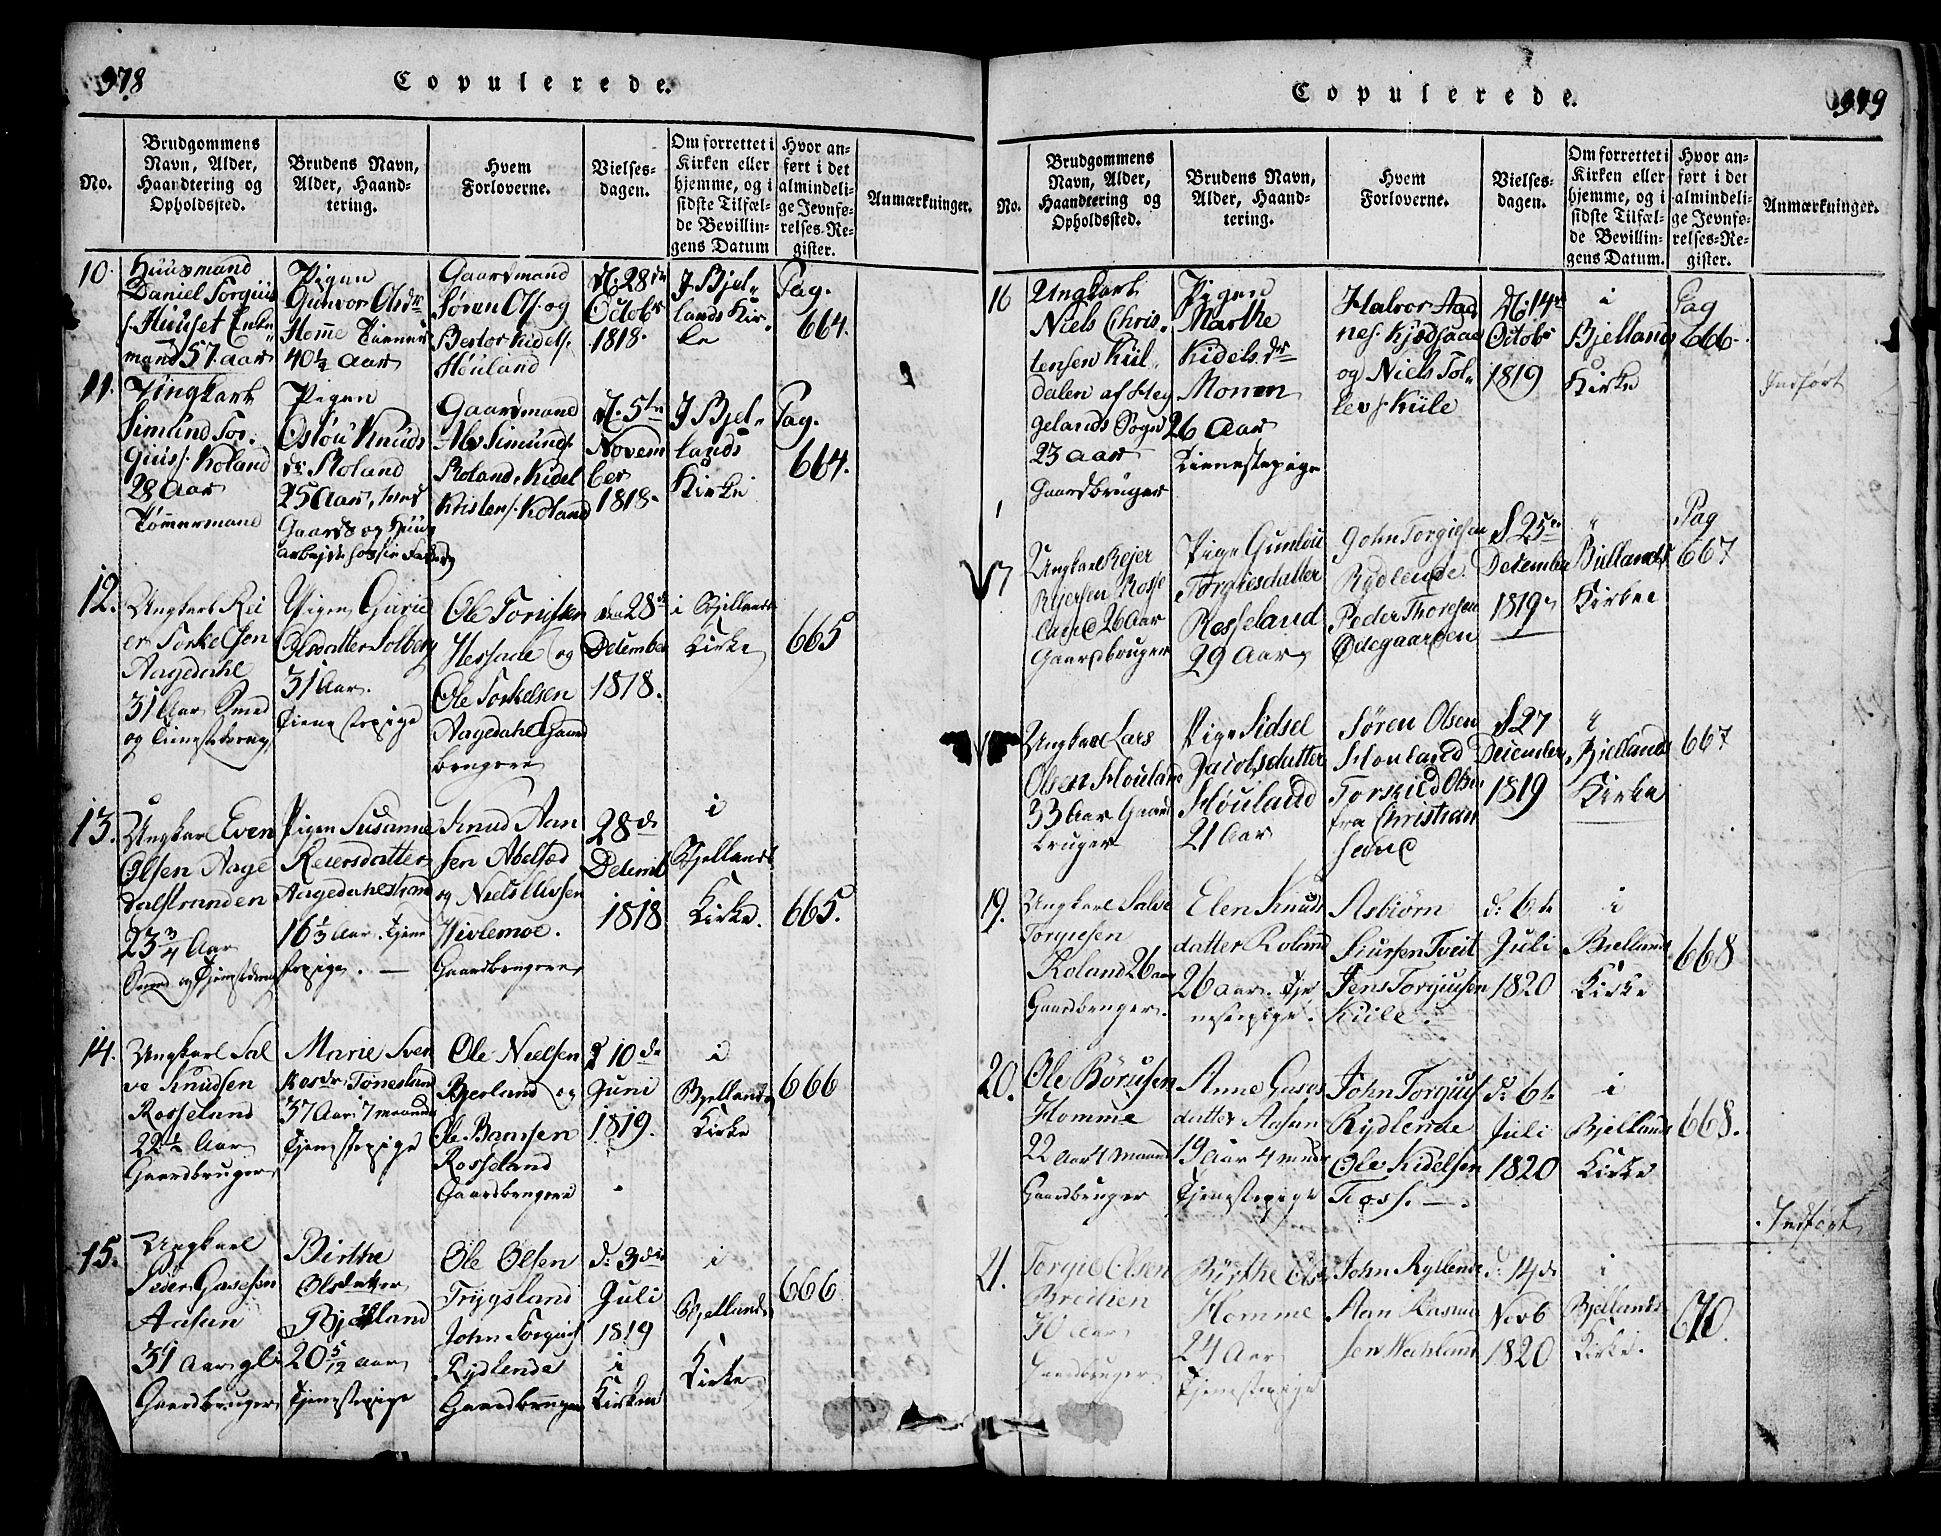 378
Copulerede.
No.
Brudgommens
Navn, Alder,
Haandtering og
Opholdssted.
Brudens Navn,
Alder, Haand-
tering.
Hvem
Forloverne.
Vielses-
dagen.
Om forrettet i
Kirken eller
hjemme, og i
sidste Tilfæl-
de Bevillin-
gens Datum
Hvor an-
ført i det
almindeli-
ge Jevnfø-
relses-Re-
gister.
Anmærkninger.
10.
Huusmand
Daniel Torgius
s. Huuset Enke
mand 57 Aar
Pigen
Gunvor Olsdr
Homme
40½ Aar
Gaardmand
Søren Ols. og
Houland
d. 28de
Octobr
1818.
I Bjel-
lands Kir-
ke
Pag.
664.
11.
Ungkarl
Simund Tor-
gius. Roland
28 Aar
Tømmermand
Pigen
Knuds
dr. Roland
25 Aar,
Gaards og Huus
Gaardmand
Simunds.
Roland, Kidel
Kristens. Roland
d. 5te
Novem
ber
1818.
I Bjel-
lands
Kirke
Pag.
664.
12.
Ungkarl Rei
er Torkelsen
Aagedahl
31 Aar Smed
og Tieniste
Pigen Guri
Olsdatter Solberg
31 Aar.
Tieniste pige
Ole
og
Ole Torkelsen
Aagedahl Gaard
brugere
den 28de
December
1818.
i Bjellands
Kirke
665
13.
Ungkarl Even
Olsen Aage
dalstranden
23¾ Aar
Smed og
Pigen Susanne
Reiersdatter
Aagedahlstrand
16⅓ Aar. Tjene
stepige.
Knud Aan
sen
og Niels
Gaardbrugere
28de
Decemb
1818
i
Bjellands
Kirke.
665.
14.
Ungkarl Sal
ve Knudsen
Rosseland
22½ Aar
Gaardbruger
Marie Sven
37 Aar 7 maaneder
Tjenstepige
Ole Nielsen
Bjerland og
Ole
Rosseland
Gaardbrugere
d 10de
Juni
1819.
i
Bjellands
Kirke
666
15.
Ungkarl
Peder Gasesen
Aasen
31 Aar gl.
Gaardbruger
Birthe
Olsdatter
Bjelland
20 5/12 Aar
Tjenstepige
Ole Olsen
Trygsland
John Torgius
Rydlende
Gaardbruger
d. 3die
Juli
1819
i
Kirken
i
Bjellands
Kirke
666
379
Copulerede.
No.
Brudgommens
Navn, Alder,
Haandtering og
Opholdssted.
Brudens Navn,
Alder, Haand-
tering.
Hvem
Forloverne.
Vielses-
dagen.
Om forrettet i
Kirken eller
hjemme, og i
sidste Tilfæl-
de Bevillin-
gens Datum.
Hvor an-
ført i det
almindeli-
ge Jevnfø-
relses-Re-
gister.
Anmærkninger.
16
Ungkarl
Niels Chris-
tensen Kul-
dalen af Heg
gelands Sogn
23 Aar
Gaardbruger
Pigen
Marthe
Kidels. dr
Monen
26 Aar
Tienestepige
Halvor Aad
nes.
og Niels Tol-
levs. Kule
d. 14de
Octobr
1819
i
Bjellands
Kirke
Pag
666.
Indført
17
Ungkarl Rejer
Rejersen Rosse
land 26 Aar
Gaardbruger
Pige Gunlou
Torgiesdatter
Rosseland
29 Aar
John Torgiesen
Rydlende.
Peder Thoresen
Ødegaarden
d 25de
December
1819
Bjellands
Kirke
Pag
667
Ungkarl Lars
Olsen Houland
33 Aar Gaard
bruger
Pige Sidsel
Jacobsdatter
Houland
21 Aar
Søren Olsen
Houland
Torskild Olsen
fra Christian
sand
d 27
December
1819
Bjellands
Kirke
667
19.
Ungkarl Salve
Torgiesen
Roland 26 aar
Gaardbruger.
Elen Knuds
datter Roland
26 aar. Tje
nestepige.
Asbiørn
Tveit
Jens Torgiusen
Kule.
d. 6te
Juli
1820
i
Bjellands
Kirke
668
20.
Ole Børusen
Homme
22 Aar 4 maaned
Gaardbruger
Anne Gases
datter Aasen
19 Aar 4 mndr
Tjenstepige
John Torgius
Rydlende
Ole Kidelsen
Foss.
d. 6te
Juli
1820
i
Bjellands
Kirke
668.
Indført
21.
Torgie Olsen
Breilien
30 Aar
Gaardbruger
Birthe Ols
Homme
24 Aar
Tjenstepige
John Ryllende
Aan Rasmu
sen
d. 14de
Novb
1820
i
Bjellands
Kirke.
670.